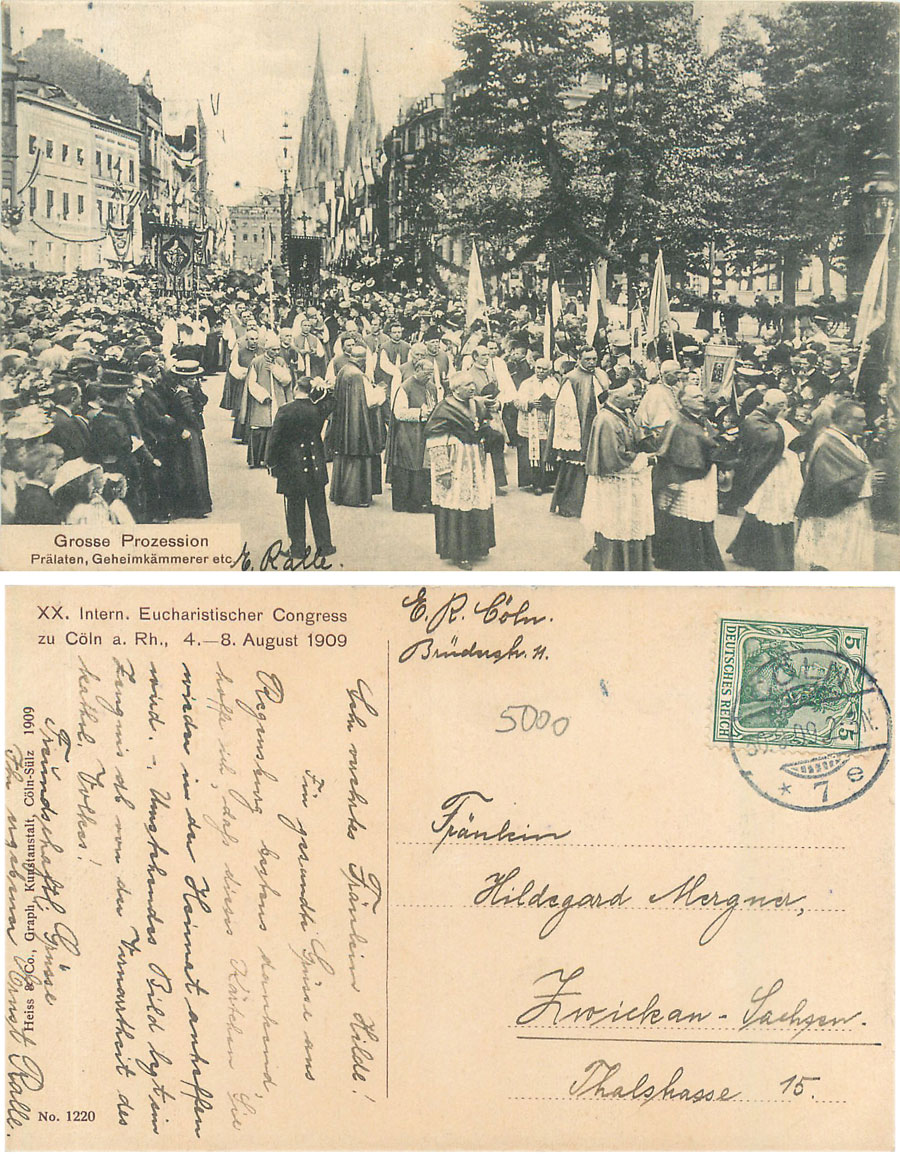 Grosse Prozession
Prälaten, Geheimkämmerer etc.
E. Ralle.
XX. Intern. Eucharistischer Congress
zu Cöln a. Rh., 4.—8. August 1909
E. R. Cöln.
Brüderstr. 11.
5000
DEUTSCHES REICH
5
5
CÖLN
* 7 e
Fräulein
Hildegard Mergner,
Zwickau - Sachsen.
Thalstrasse 15.
Sehr verehrtes Fräulein Hilde!
Für gesandte Grüsse aus
Regensburg bestens dankend,
hoffe ich, daß dieses Kärtchen Sie
wieder in der Heimat antreffen
wird. - Umstehendes Bild legt ein
Zeugnis ab von der Vernarrtheit des
kathol. Volkes!
Freundschaftl. Grüsse
Ihr ergebener Ernst Ralle.
Heiss & Co., Graph. Kunstanstalt, Cöln-Sülz 1909
No. 1220